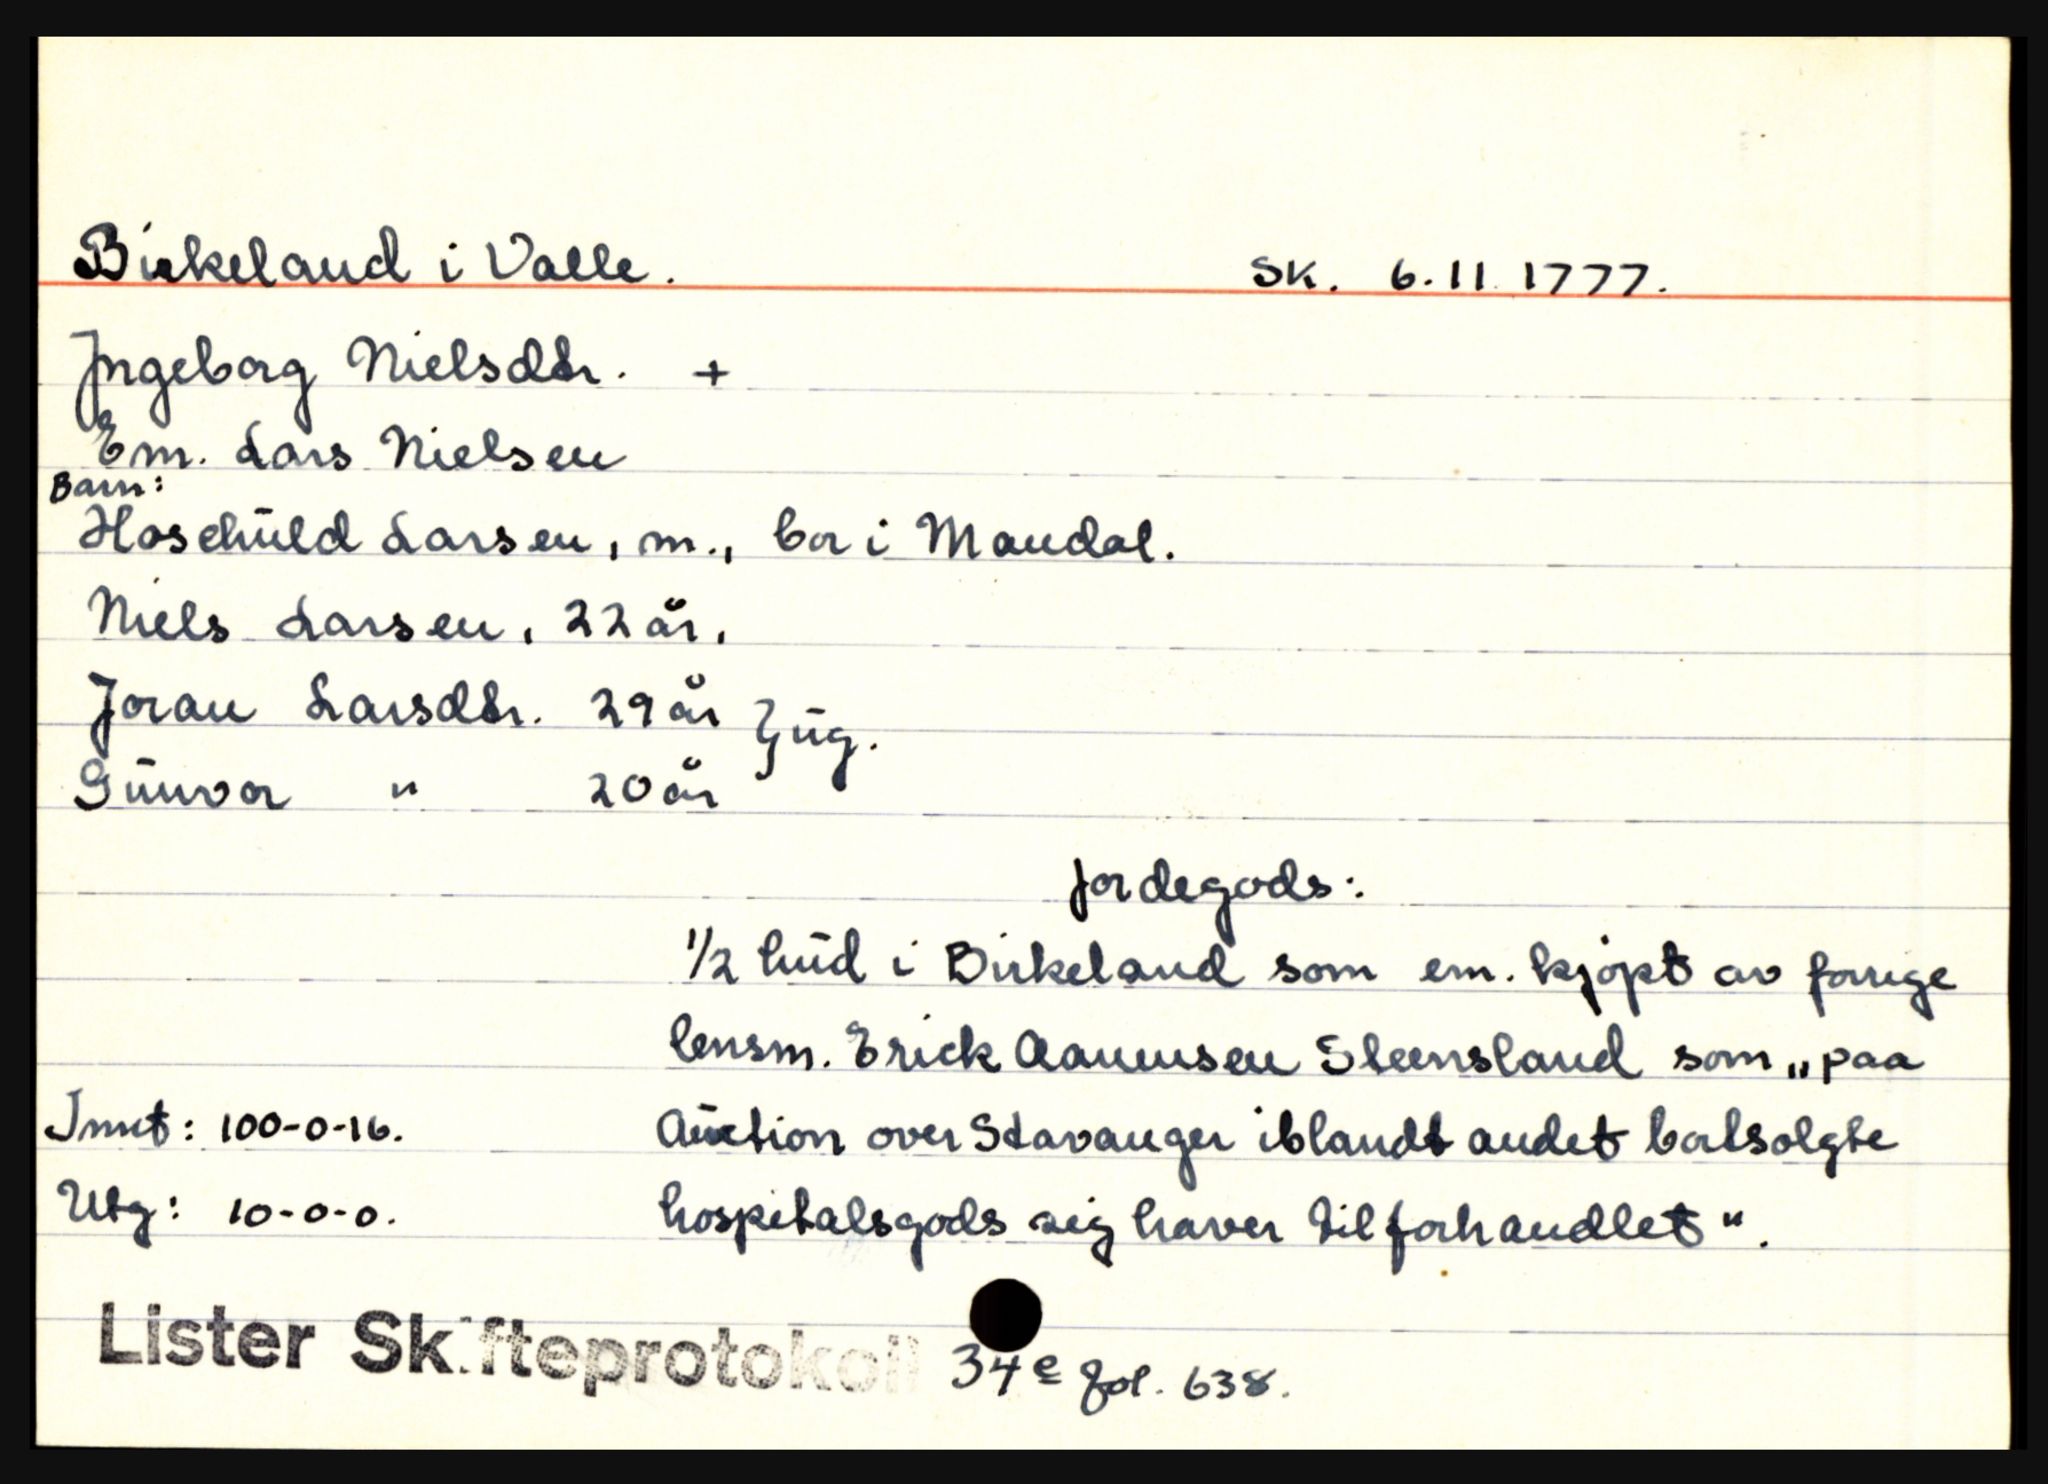 Birkeland i Valle. SK. 6.11.1777.
Ingeborg Nielsdtr. +
Em. Lars Nielsen
Barn:
Haschuld Larsen, m., bor i Mandal.
Niels Larsen, 22 år,
Joran Larsdtr. 29 år } ug.
Gunvor " 20 år
Jordegods:
1/2 hud i Birkeland som em. kjöpt av forrige
lensm. Erick Aanunsen Steensland som „paa
Auction over Stavanger iblandt andet bortsolgte
Innt: 100-0-16.
hospitalsgods sig haver tilforhandlet".
Utg: 10-0-0.
Lister Skifteprotokoll 34e fol. 638.